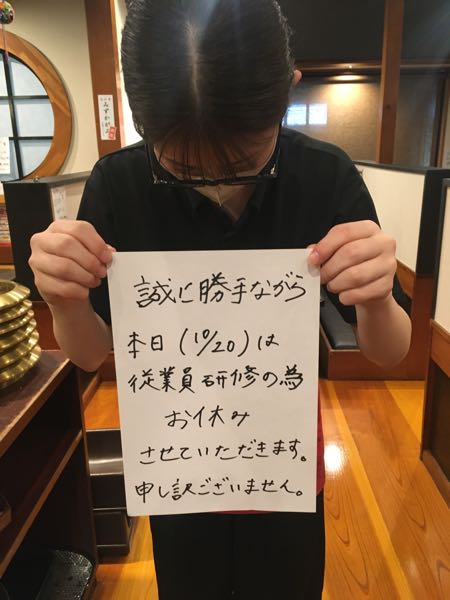 誠に勝手ながら
本日(10/20)は
従業員研修の為
お休み
させていただきます。
申し訳ございません。